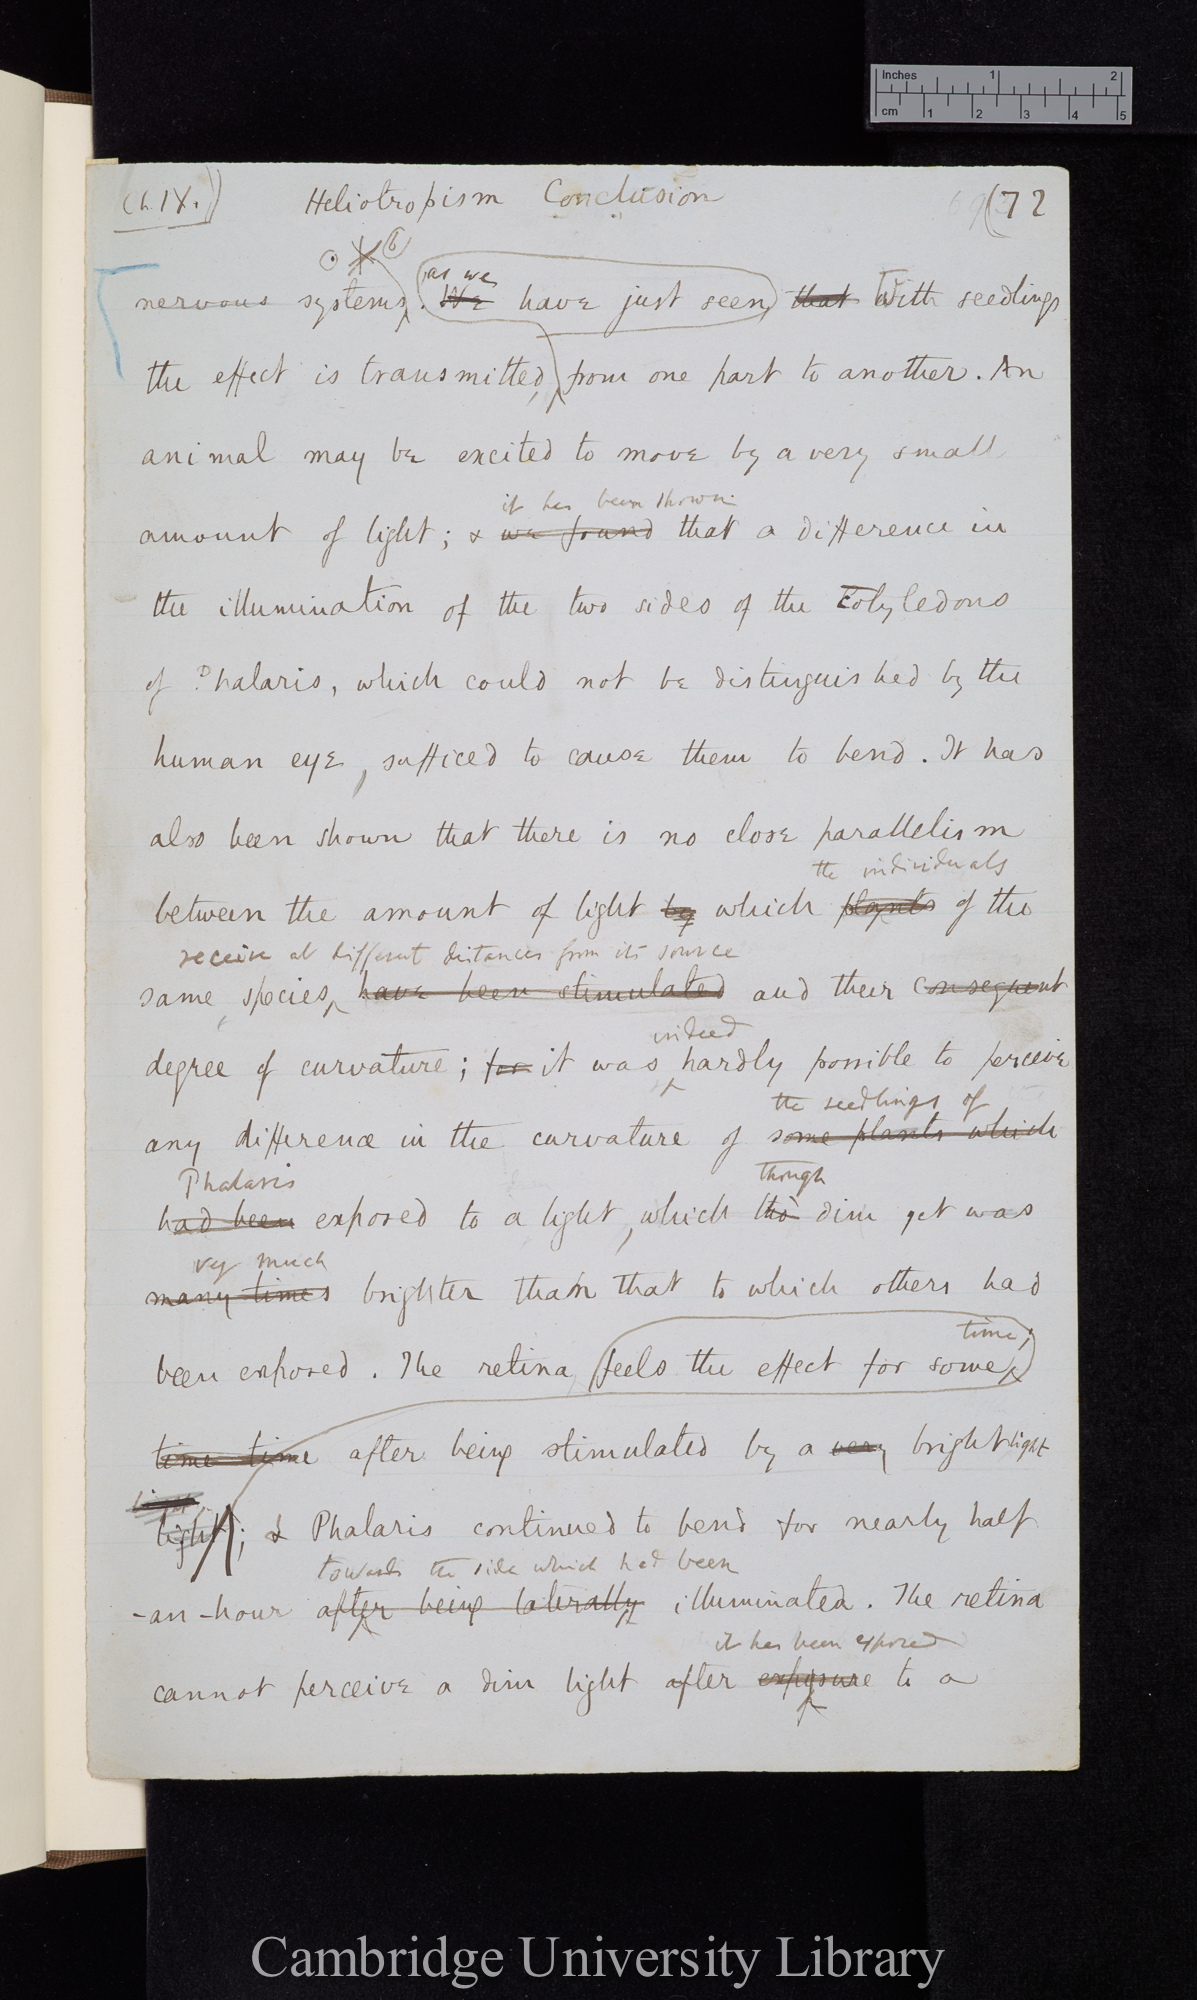 Inches 1 2
cm 1 2 3 4 5
Ch. IX.) Heliotropism Conclusion 69 (72
6
as we
nervous systems. We have just seen, that With seedlings
the effect is transmitted, from one part to another. An
animal may be excited to move by a very small
it has been shown
amount of light; & we found that a difference in
the illumination of the two sides of the Cotyledons
of Phalaris, which could not be distinguished by the
human eye, sufficed to cause them to bend. It has
also been shown that there is no close parallelism
the individuals
between the amount of light by which plants of the
receive at different distances from its source
same species, have been stimulated and their consequent
indeed
degree of curvature; for it was hardly possible to perceive
the seedlings of
any difference in the curvature of some plants which
Phalaris though
had been exposed to a light, which tho' dim yet was
very much
many times brighter than that to which others had
time,
been exposed. The retina feels the effect for some
time time after being stimulated by a very bright light
light; & Phalaris continued to bend for nearly half
towards the side which had been
-an-hour after being laterally illuminated. The retina
it has been exposed
cannot perceive a dim light after exposure to a
Cambridge University Library